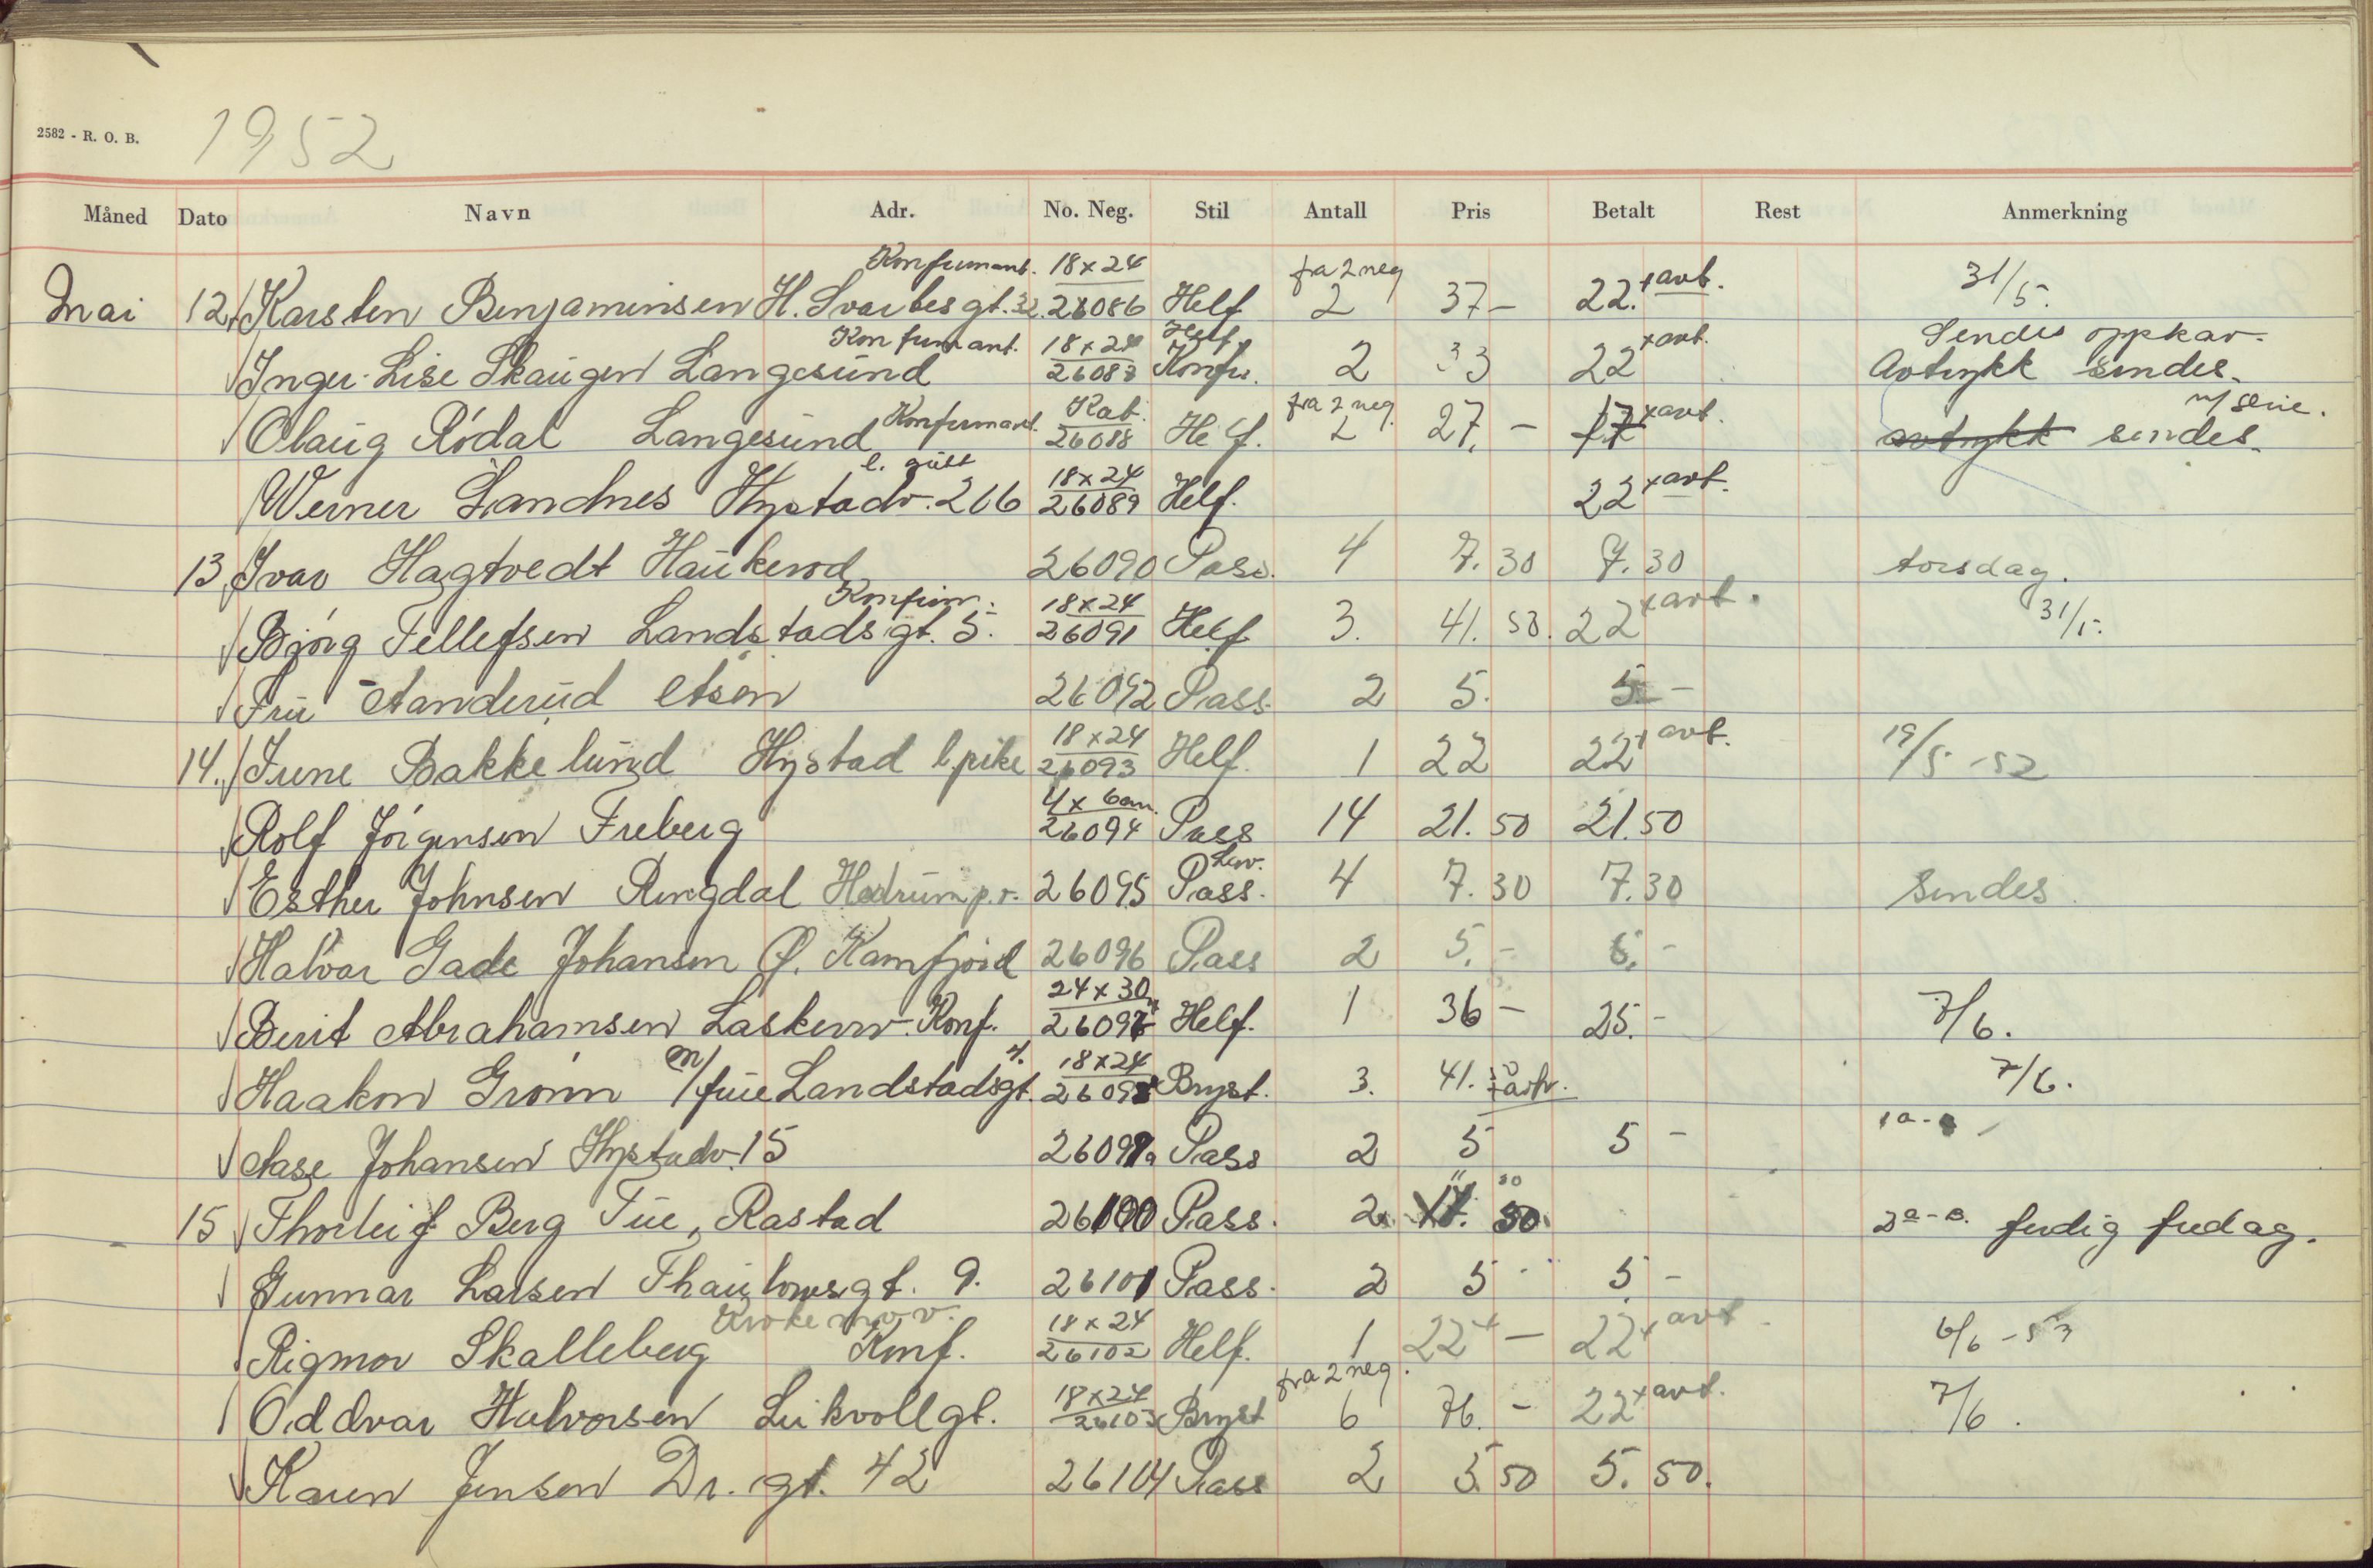 2582 - R. O. B.
1952
Måned Dato Navn Adr. No. Neg. Stil Antall Pris Betalt Rest Anmerkning
Konfirmant. 18x24 fra 2 neg
Mai 12 Karsten Benjaminsen H. Svartesgt. 32. 26086 Helf 2 37 - 22.+avt. 31/5.
Konfirmant. 18x24 Helf. Sendes oppkav.
Inger-Lise Skaugen Langesund Konfir. 2 33 22 +avt. Avtrykk sendes.
Konfirmant. Kab. fra 2 neg. m/ serie.
Olaug Rödal Langesund 26088 Helf. 2 27. - 17 +avt. avtrykk sendes.
l. gutt 18x24
Werner Landnes Hystadv. 266 26089 Helf. 22 +avt.
13 Ivar Hagtvedt Haukerod 26090 Pass. 4 7.30 7.30 torsdag.
Konfirm. 18x24
Bjørg Tellefsen Landstadsgt. 5. 26091 Helf 3. 41. 50. 22 +avt. 31/5.
Fru Aanderud Åsen 26092 Pass. 2 5. 5 -
18x24
14. Irene Bakkelund Hystad l. pike 26093 Helf. 1 22 22 +avt. 19/5 -52
4x6cm.
Rolf Jörgensen Freberg 26094 Pass 14 21.50 21.50
Lev.
Esther Johnsen Ringdal Hedrum p.r. 26095 Pass. 4 7.30 7.30 Sendes.
Halvar Gade Johansen Ø. Kamfjord 26096 Pass 2 5. - 5. -
24x30
Berit Abrahamsen Laskerv. Konf. 26097 Helf. 1 36 - 25. - 7/6.
18x24
Haakon Grönn m/ frue Landstadsgt. 4. 26098 Bryst. 3. 41. 50 +avtr. 7/6.
Aase Johansen Hystadv. 15 26099 Pass 2 5 5 -
15 Thorleif Berg Fue, Rastad 26100 Pass. 2 11 50 2a-a. ferdig fredag.
Gunnar Larsen Thaulowsgt. 9. 26101 Pass. 2 5 5 -
18x24
Rigmor Skalleberg Konf. 26102 Helf. 1 22 + - 22 +avt
18x24 fra 2 neg.
Oddvar Halvorsen Leikvollgt. 26103 Bryst 6 76. - 22 +avt. 7/6.
Karen Jensen Dr. gt. 42 26104 Pass 2 5.50 5.50.